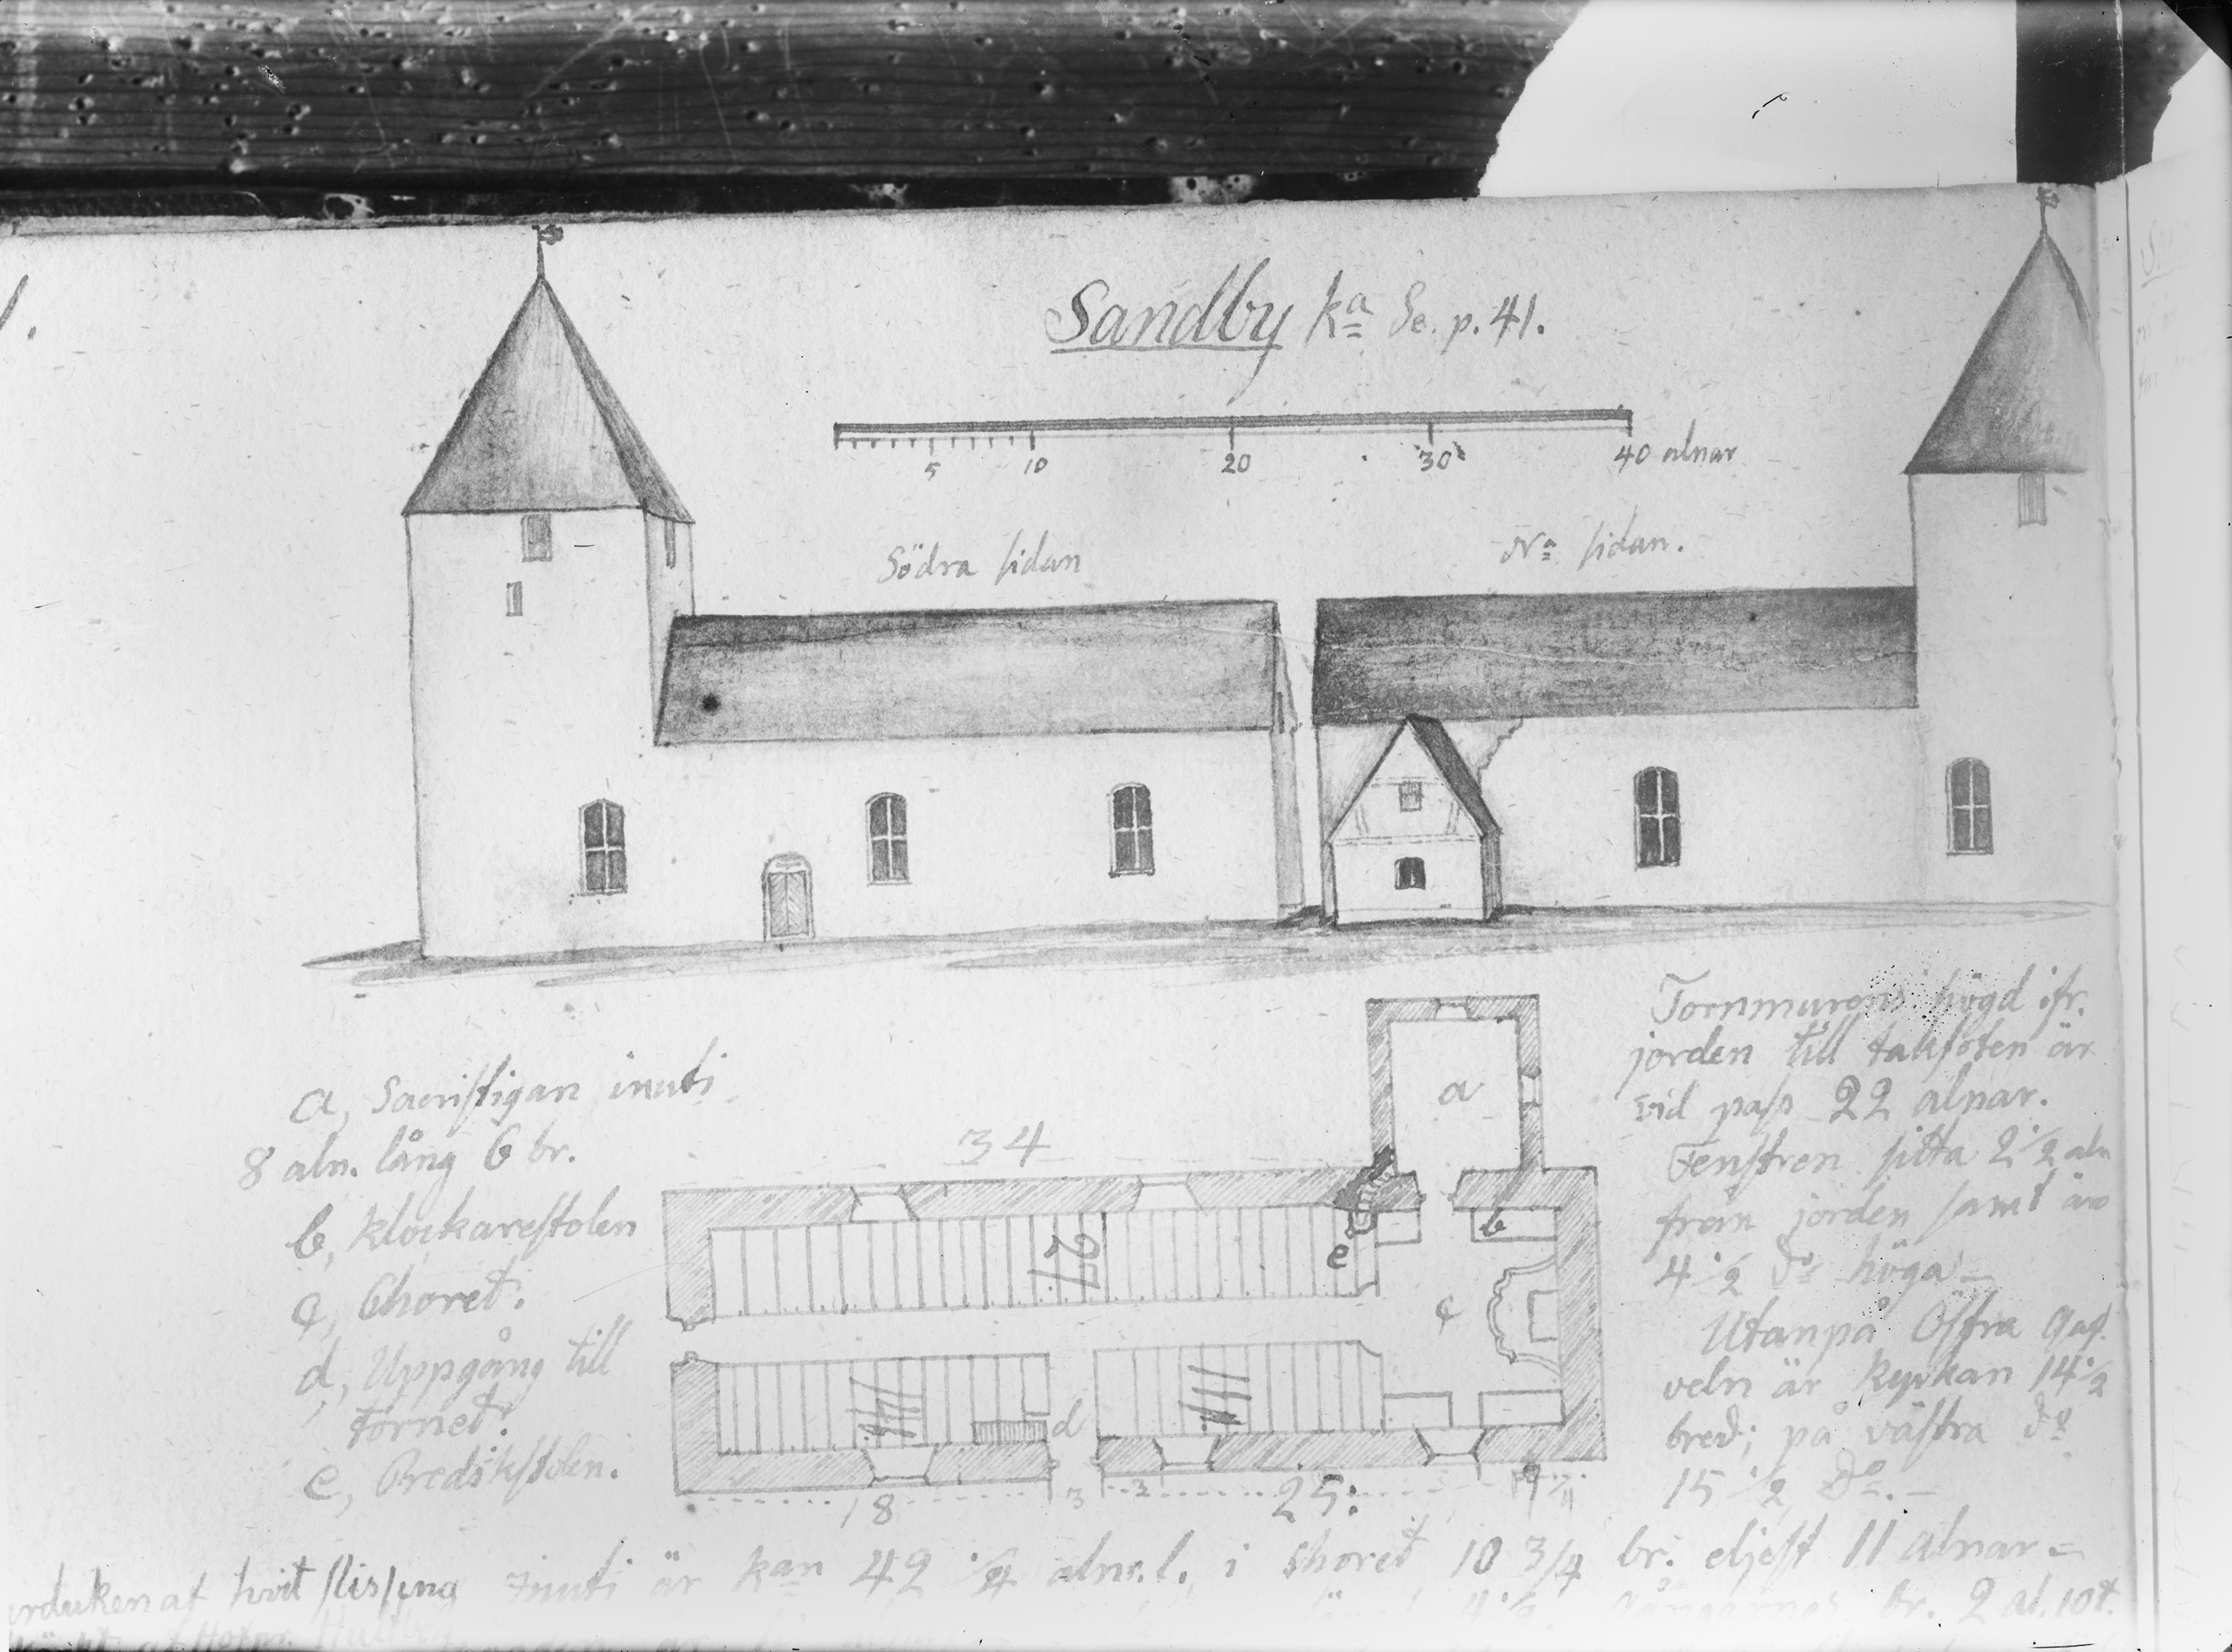 Sandby kª Se. p. 41.
5 10 20 30 40 alnar
Södra sidan
Nª sidan.
a, Sacristigan inuti
8 aln. lång 6 br.
b, klockarestolen
c, Choret.
d, Uppgång till
tornet.
e, Predikstolen.
34
a
27
b
e
c
d
18 3 25:
Tornmurens högd ifr.
jorden till takfoten är
vid pass 22 alnar.
Fenstren sitta 2 1/2 aln
från jorden samt äro
4 1/2 do höga
Utanpå Östra gaf-
veln är kyrkan 14 1/2
bred; på västra do
15 1/2 do.
duken af hvit slissing Inuti är kan 42 alnr. l. i Choret 10 3/4 br. eljest 11 alnar
br. 2 al. 10 t.